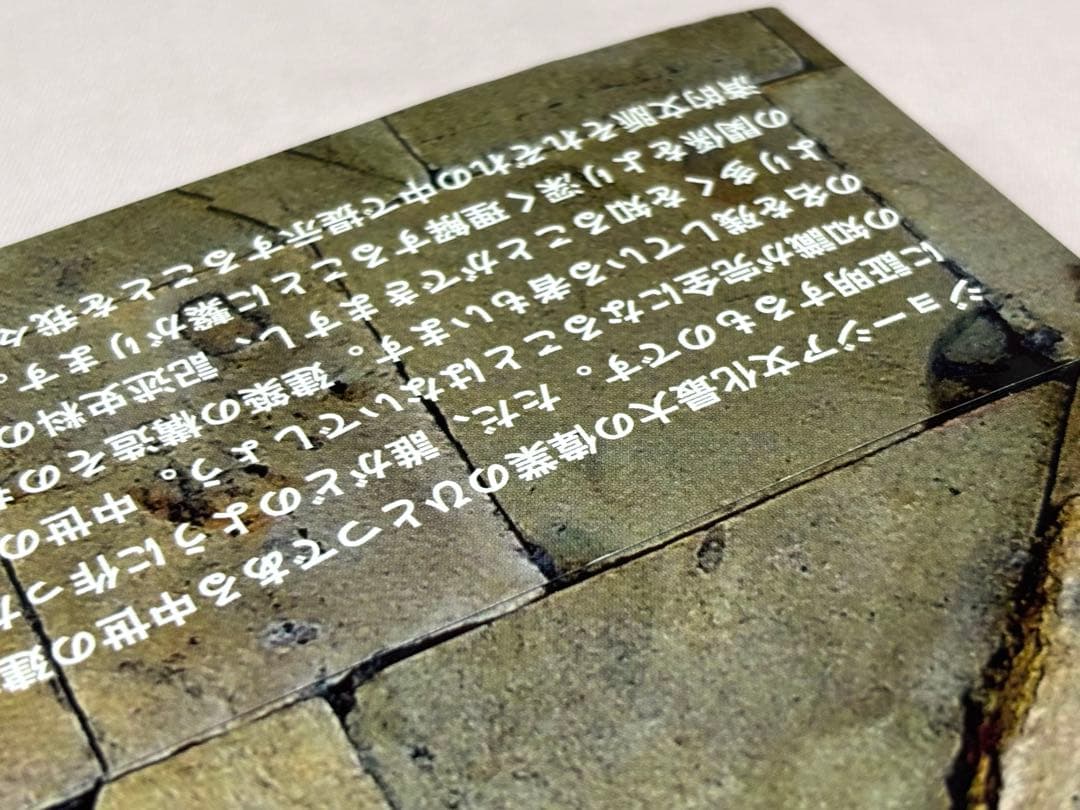 ジョージア文化最大の偉業のひとつである中世の建
に証明するものです。ただ、誰がどのように作った
の知識が完全になることはないでしょう。中世の
の名を残している者もいます。建築の構造そのも
より多くを知ることができますし、記述史料の
の関係をより深く理解することに繋がります。
済的文脈それぞれの中で提示することを我々